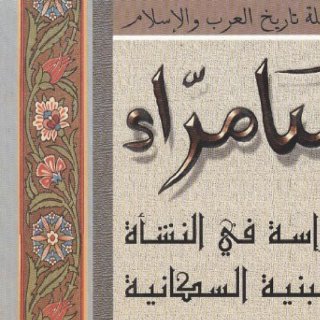 لة تاريخ العرب والإسلام
سامرّاء
اسة في النشأة
لبنية السكانية